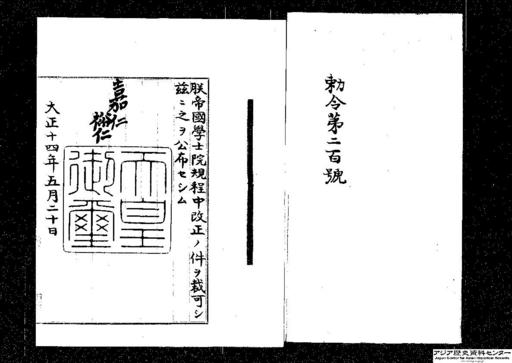 勅令第二百號
朕帝國學士院規程中改正ノ件ヲ裁可シ
茲ニ之ヲ公布セシム
嘉仁
裕仁
天皇
御璽
大正十四年五月二十日
アジア歴史資料センター
Japan Center for Asian Historical Records